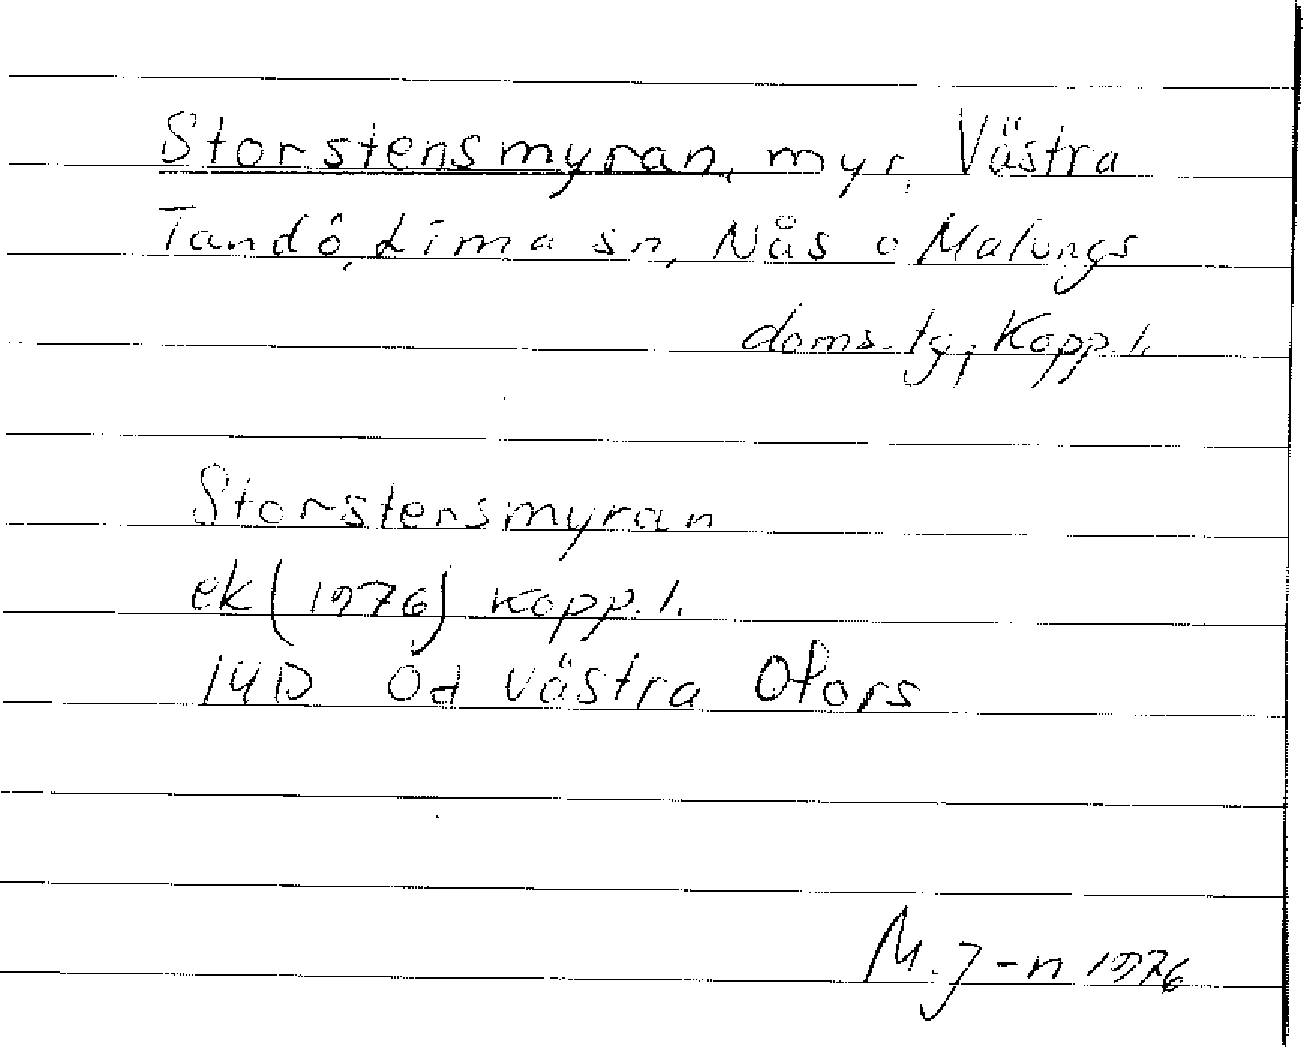 Storstensmyran, myr, Västra
Tandö, Lima sn, Nås o Malungs
doms. tg, Kopp. l.
Storstensmyran
ek (1976) Kopp. l.
14D Öd Västra Ofors
M. J-n 1976